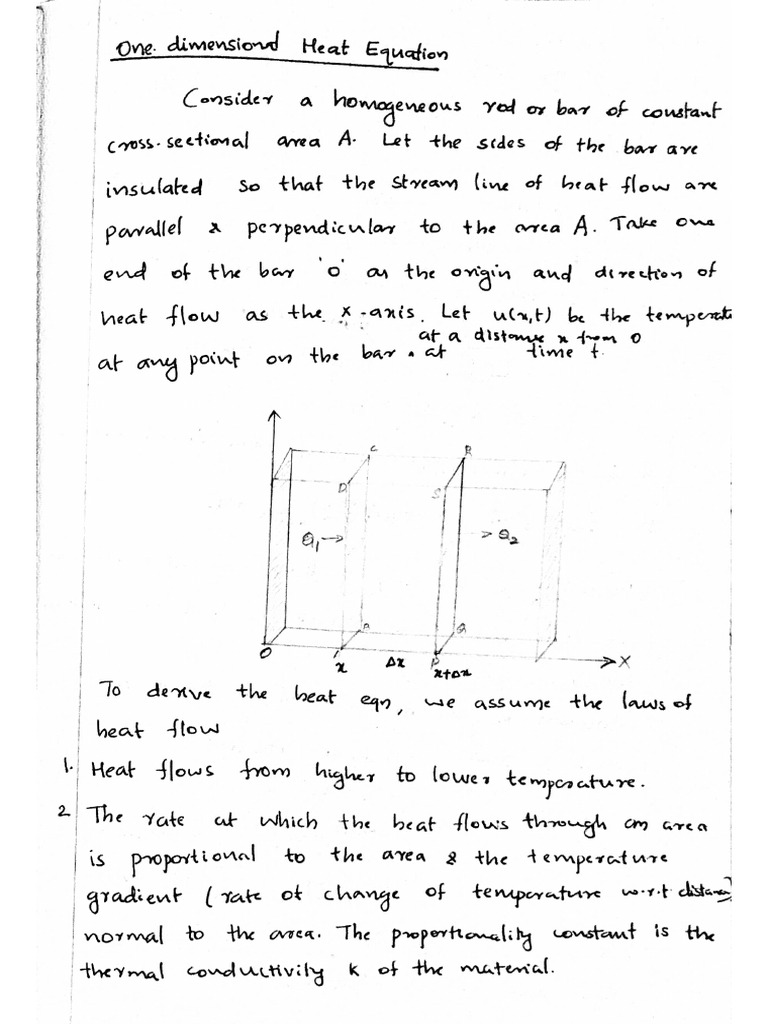 One-dimensional Heat Equation
Consider a homogeneous rod or bar of constant
cross-sectional area A. Let the sides of the bar are
insulated so that the stream line of heat flow are
parallel & perpendicular to the area A. Take one
end of the bar 'O' as the origin and direction of
heat flow as the x-axis. Let u(x,t) be the temperatu
at a distance x from O
at any point on the bar at time t.
C R
D S
Q1→ → Q2
Q
O P X
x Δx x+Δx
To derive the heat eqn, we assume the laws of
heat flow
1. Heat flows from higher to lower temperature.
2 The rate at which the heat flows through an area
is proportional to the area & the temperature
gradient (rate of change of temperature w.r.t distance)
normal to the area. The proportionality constant is the
thermal conductivity k of the material.